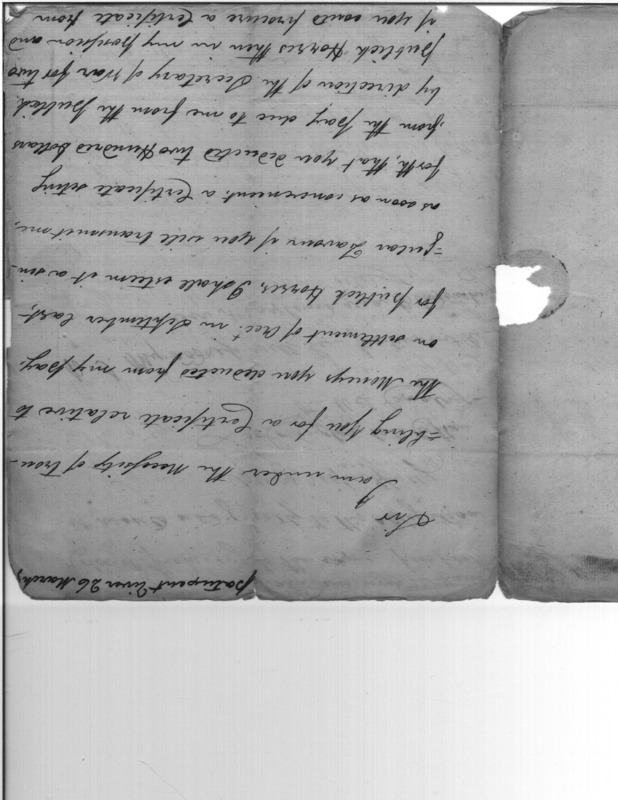 Patuxent River 26 March,
Sir
I am under the Necessity of trou-
=bling You for a Certificate relative to
the Moneys you deducted from my pay,
on settlement of Acct in September last,
for publick Horses, I shall esteem it a sin-
=gular Favour if you will transmit me,
as soon as convenient, a Certificate seting
forth, that you deducted two Hundred Dollars
from the pay due to me from the publick,
by direction of the Secretary of War for two
publick Horses then in my possession and
if you could procure a Certificate from